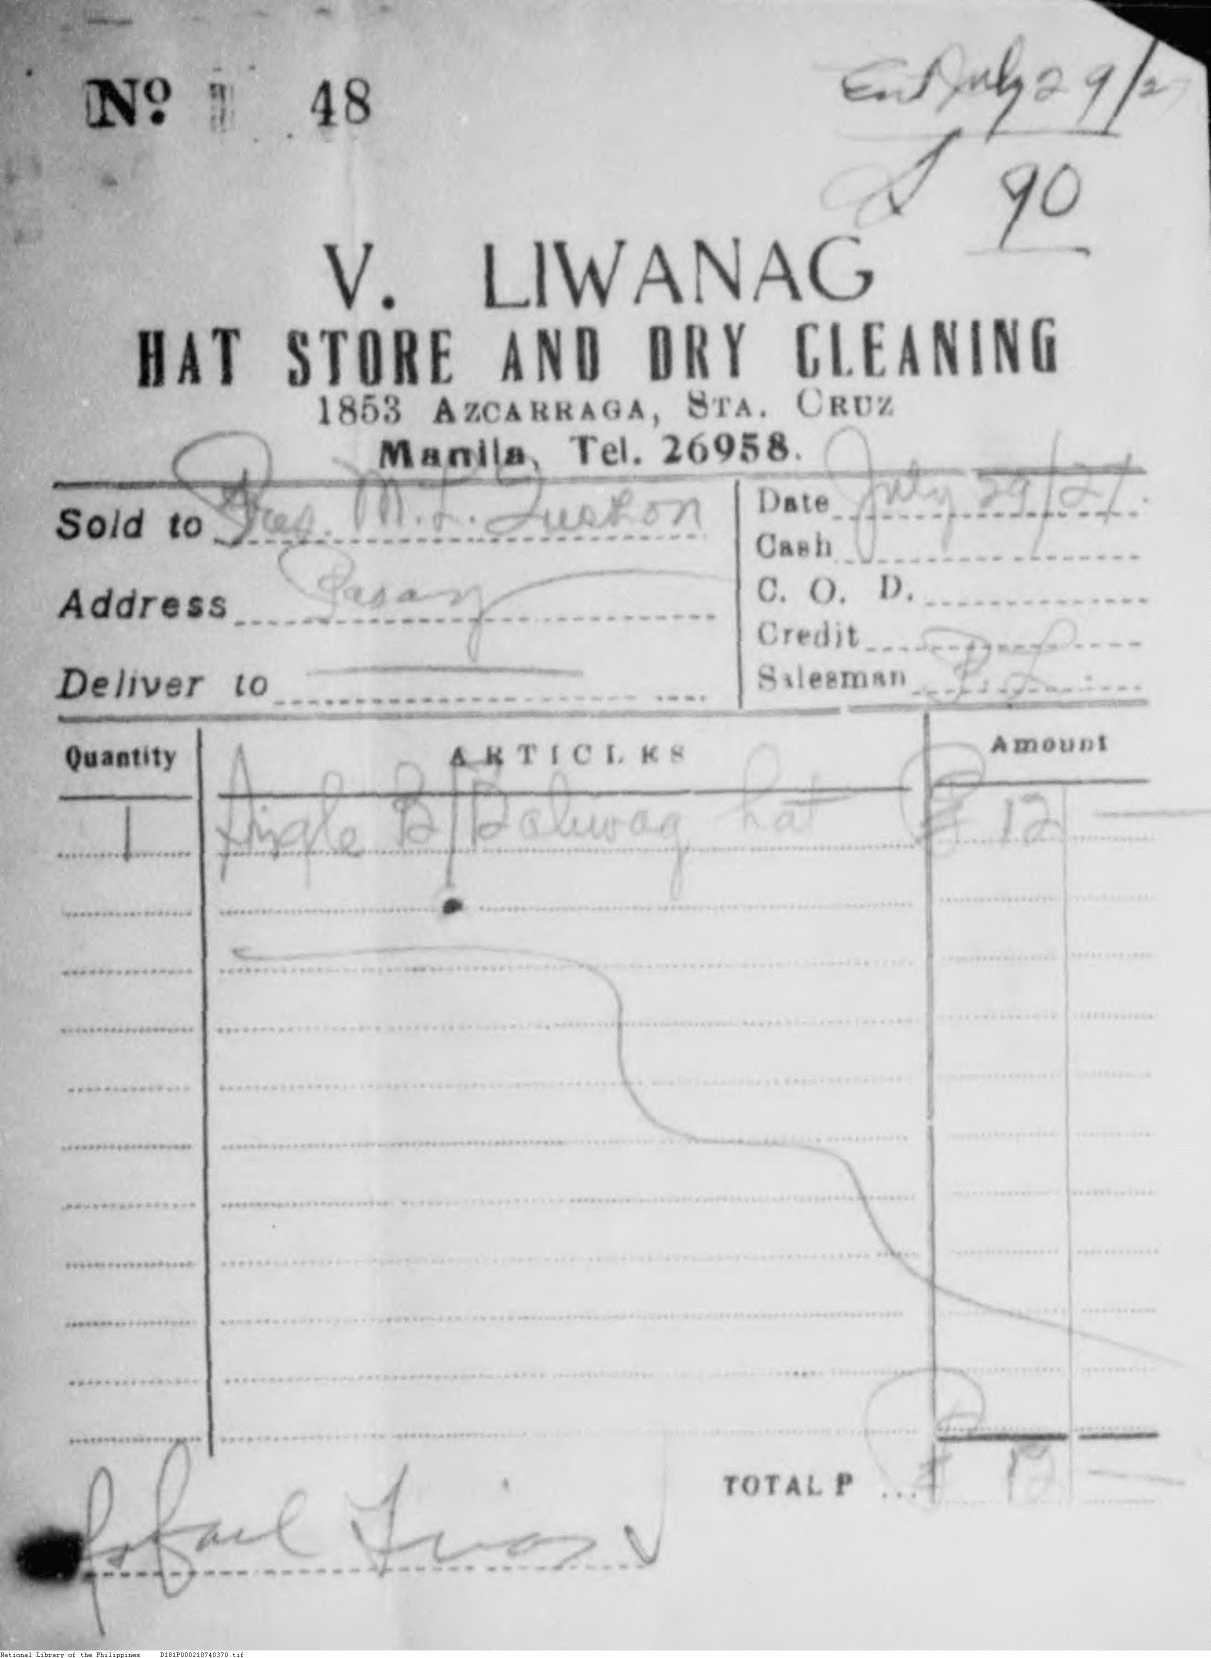 No. 48
July 29/2
90
V. LIWANAG
HAT STORE AND DRY CLEANING
1853 AZCARRAGA, STA. CRUZ
Manila, Tel. 26958.
Sold to Pres. M. L. Quezon
Date July 29/2
Address Pasay
Cash
C. O. D.
Credit
Deliver to
Salesman
Quantity ARTICLES Amount
1 Single B/Baliwag hat ₱ 12
TOTAL P ... ₱ 12
Rafael
National Library of the Philippines D181P000210740370.tif